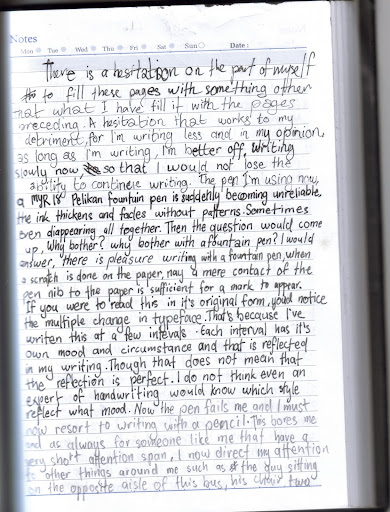 Notes
Mon Tue Wed Thu Fri Sat Sun Date :
There is a hesitation on the part of myself
to fill these pages with something other
that what I have fill it with the pages
preceding. A hesitation that works to my
detriment, for I'm writing less and in my opinion,
as long as I'm writing, I'm better off. Writing
slowly now so that I would not lose the
ability to continue writing. The pen I'm using now,
a Pelikan fountain pen is suddenly becoming unreliable.
the ink thickens and fades without patterns. Sometimes
even diappearing all together. Then the question would come
up, Why bother? why bother with a fountain pen? I would
answer, there is pleasure writing with a fountain pen, when
a scratch is done on the paper, nay a mere contact of the
pen nib to the paper is sufficient for a mark to appear.
If you were to read this in it's original form, you'd notice
the multiple change in typeface. That's because I've
writen this at a few intevals. Each interval has it's
own mood and circumstance and that is reflected
in my writing. Though that does not mean that
the reflection is perfect. I do not think even an
expert of handwriting would know which style
reflect what mood. Now the pen fails me and I must
now resort to writing with a pencil. This bores me
and as always for someone like me that have a
very short attention span, I now direct my attention
to other things around me such as the guy sitting
on the opposite aisle of this bus, his chair two